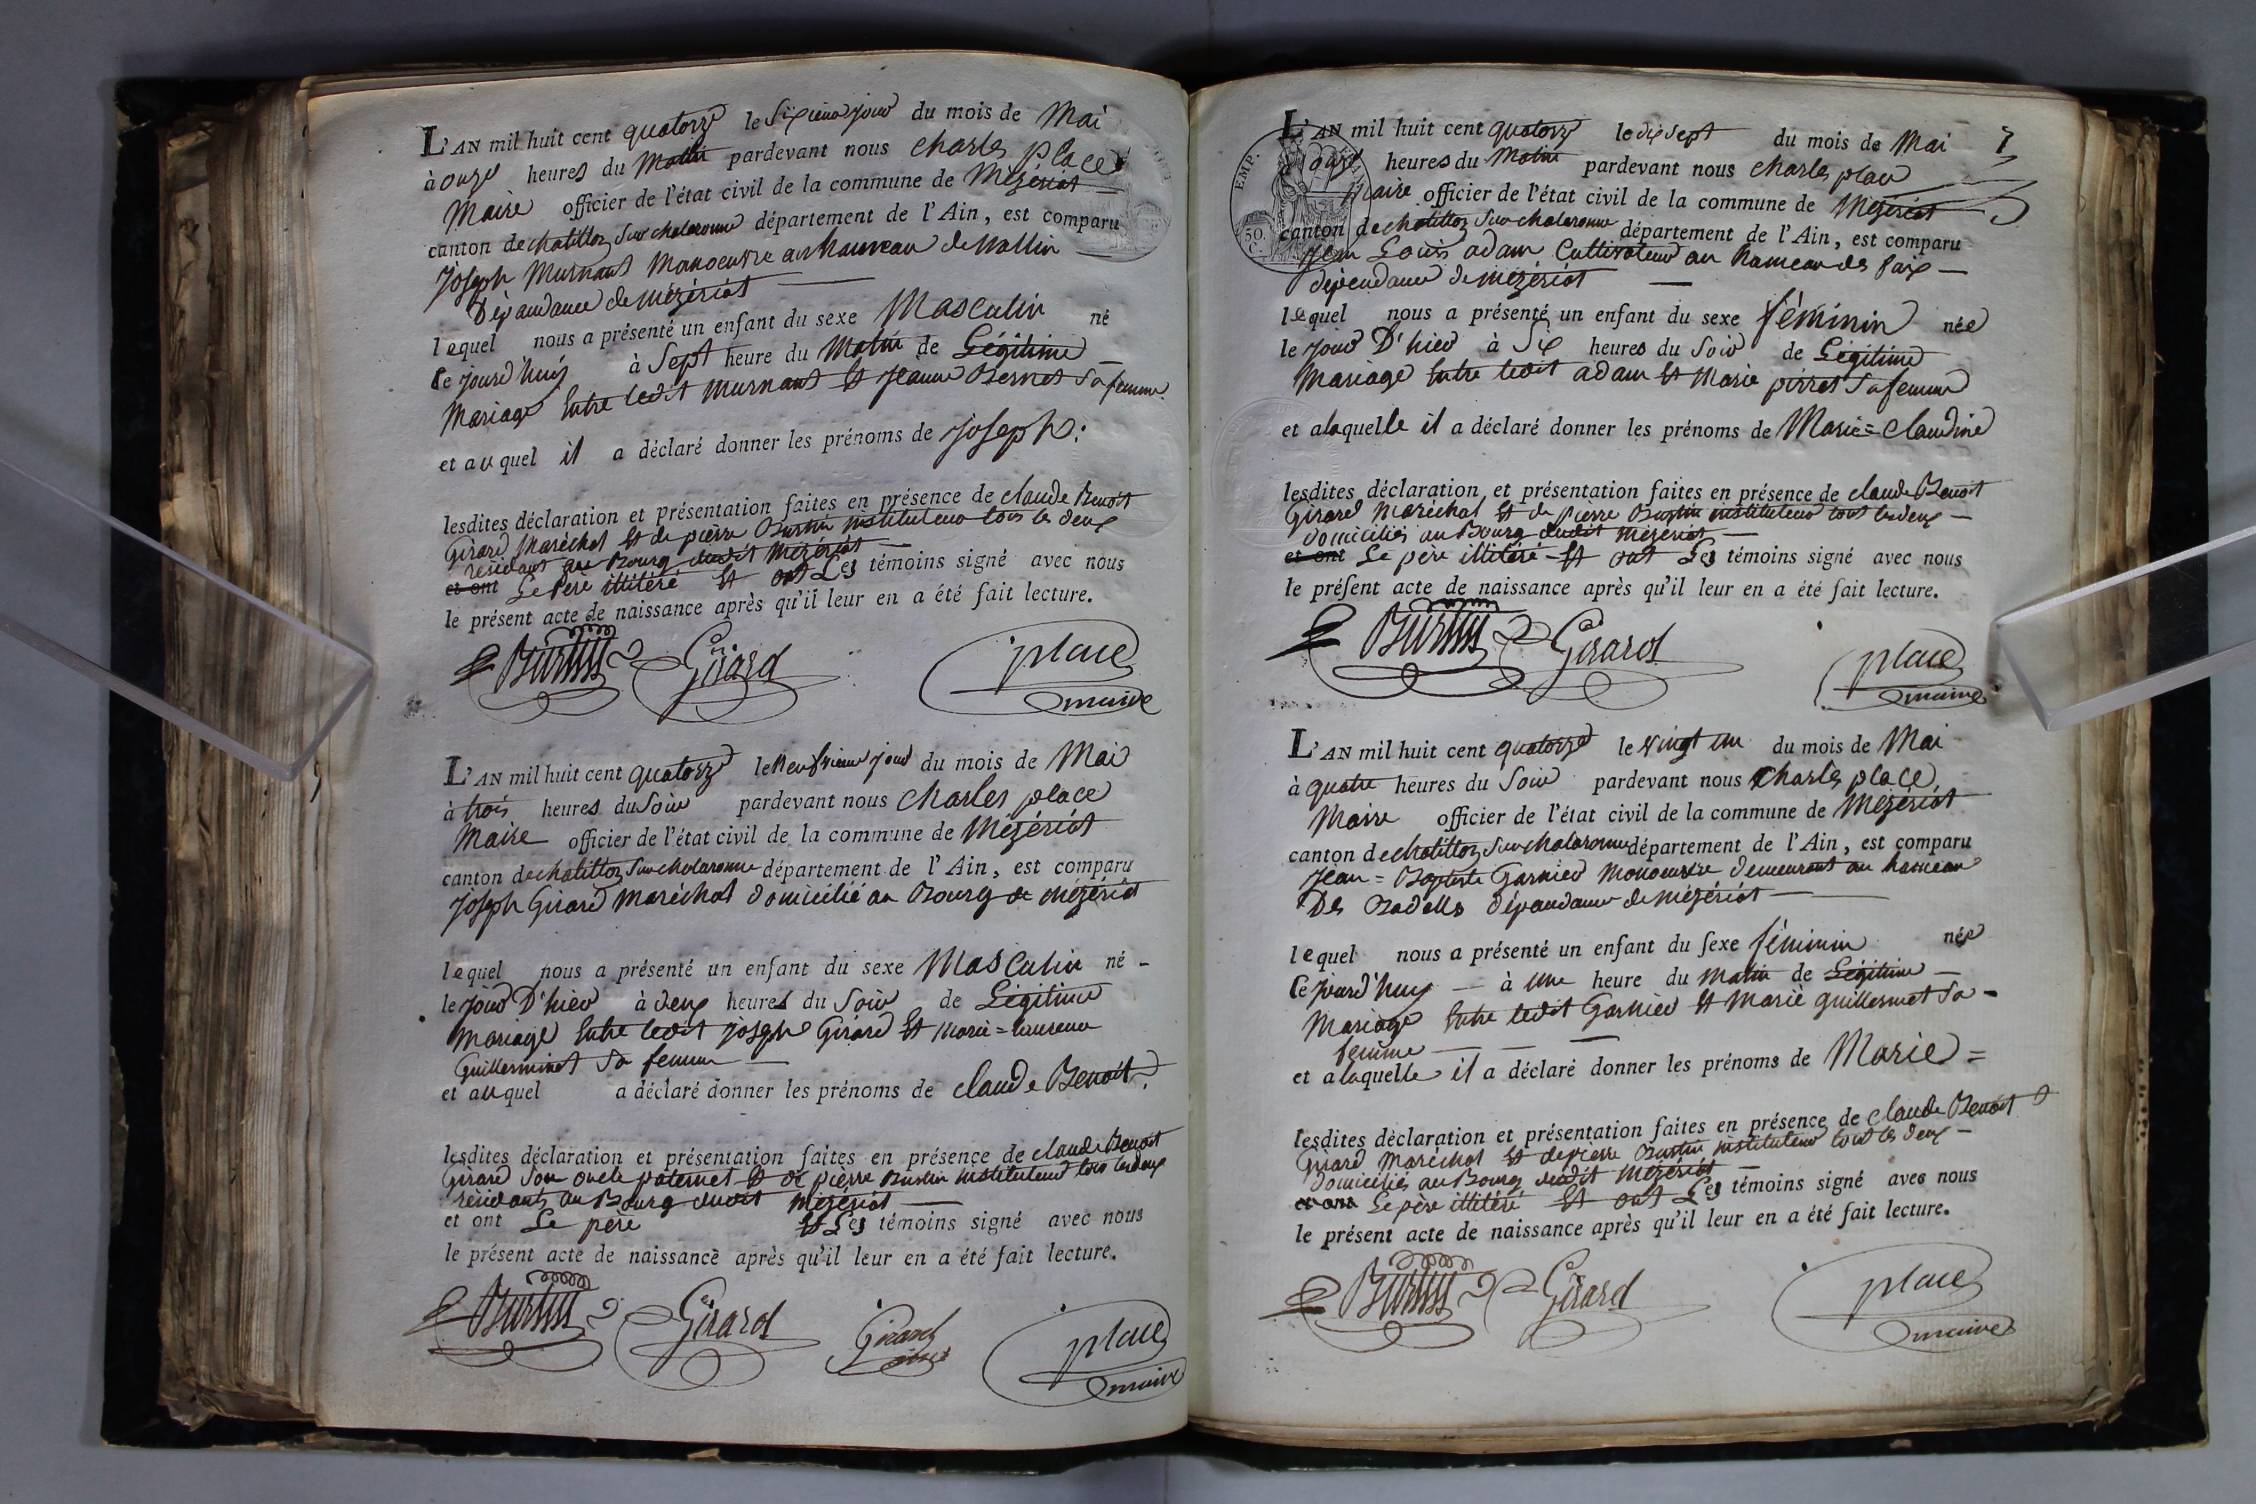 L'AN mil huit cent quatorze le Sixième jour du mois de Mai
à onze heures du Matin pardevant nous charles place
Maire officier de l'état civil de la commune de Mézériat
canton de chatillon sur chalaronne département de l'Ain, est comparu
Joseph Murnant Manoeuvre au hameau de Vallin
Dépandance de Mézériat
lequel nous a présenté un enfant du sexe Masculin né
ce jourd'huy à Sept heure du Matin de Légitime
Mariage Entre ledit Murnant Et Jeanne Bernet Sa femme
et auquel il a déclaré donner les prénoms de joseph:
lesdites déclaration et présentation faites en présence de claude Benoit
Girard Maréchal Et de pierre Burtin instituteur tous les deux
résidants au Bourg dudit Mézériat
et ont Le Père illitéré Et ont Les témoins signé avec nous
le présent acte de naissance après qu'il leur en a été fait lecture.
Burtin Girard place
maire
L'AN mil huit cent quatorze le Neufvième jour du mois de Mai
à trois heures du Soir pardevant nous Charles place
Maire officier de l'état civil de la commune de Mézériat
canton de chatillon sur chalaronne département de l'Ain, est comparu
joseph Girard Maréchal domicilié au Bourg de Mézériat
lequel nous a présenté un enfant du sexe Masculin né -
le jour D'hier à deux heures du Soir de Légitime
Mariage Entre ledit joseph Girard Et Marie=laurence
Guillerminet Sa femme
et auquel a déclaré donner les prénoms de claude Benoit.
lesdites déclaration et présentation faites en présence de claude Benoit
Girard Son oncle paternel Et de pierre Burtin instituteur tous les deux
résidants au Bourg dudit Mézériat
et ont Le père Et Les témoins signé avec nous
le présent acte de naissance après qu'il leur en a été fait lecture.
Burtin Girard Girard place
maire
7
L'AN mil huit cent quatorze le dix sept du mois de Mai
à onze heures du Matin pardevant nous charles place
Maire officier de l'état civil de la commune de Mézériat
canton de chatillon sur chalaronne département de l'Ain, est comparu
EMP.
50.
C.
Jean Louis adam Cultivateur au hameau des faix
dépendance de Mézériat
lequel nous a présenté un enfant du sexe féminin née
le jour D'hier à Six heures du Soir de Légitime
Mariage Entre ledit adam Et Marie pirret Sa femme
et alaquelle il a déclaré donner les prénoms de Marie=claudine
lesdites déclaration et présentation faites en présence de claude Benoit
Girard Maréchal Et de pierre Burtin instituteur tous les deux
domiciliés au Bourg dudit Mézériat
et ont Le père illitéré Et ont Les témoins signé avec nous
le présent acte de naissance après qu'il leur en a été fait lecture.
Burtin Girard place
maire
L'AN mil huit cent quatorze le vingt un du mois de Mai
à quatre heures du Soir pardevant nous Charles place
Maire officier de l'état civil de la commune de Mézériat
canton de chatillon sur chalaronne département de l'Ain, est comparu
Jean=Baptiste Garnier Manoeuvre demeurant au hameau
Des Radells dépandance de Mézériat
lequel nous a présenté un enfant du sexe féminin née
ce jourd'huy à une heure du Matin de Légitime
Mariage Entre ledit Garnier Et Marie guillermet Sa -
femme
et alaquelle il a déclaré donner les prénoms de Marie=
lesdites déclaration et présentation faites en présence de claude Benoit
Girard Maréchal Et de pierre Burtin instituteur tous les deux
domiciliés au Bourg dudit Mézériat
et ont Le père illitéré Et ont Les témoins signé avec nous
le présent acte de naissance après qu'il leur en a été fait lecture.
Burtin Girard place
maire